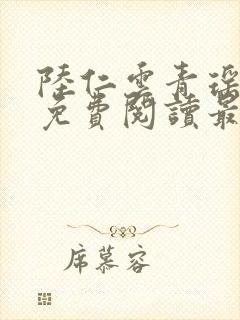 陸仁雲青瑤
免費閱讀最
席慕容